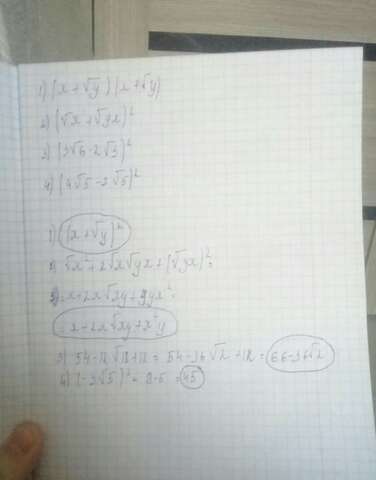 1) (x+√y)(x+√y)
2) (√x+√yx)²
3) (3√6-2√3)²
4) (4√5-3√5)²
1) (x+√y)²
2) √x²+2√x√yx+(√yx)²=
=x+2x√xy+x²y
3) 54-12√18+12=54-36√2+12=66-36√2
=45